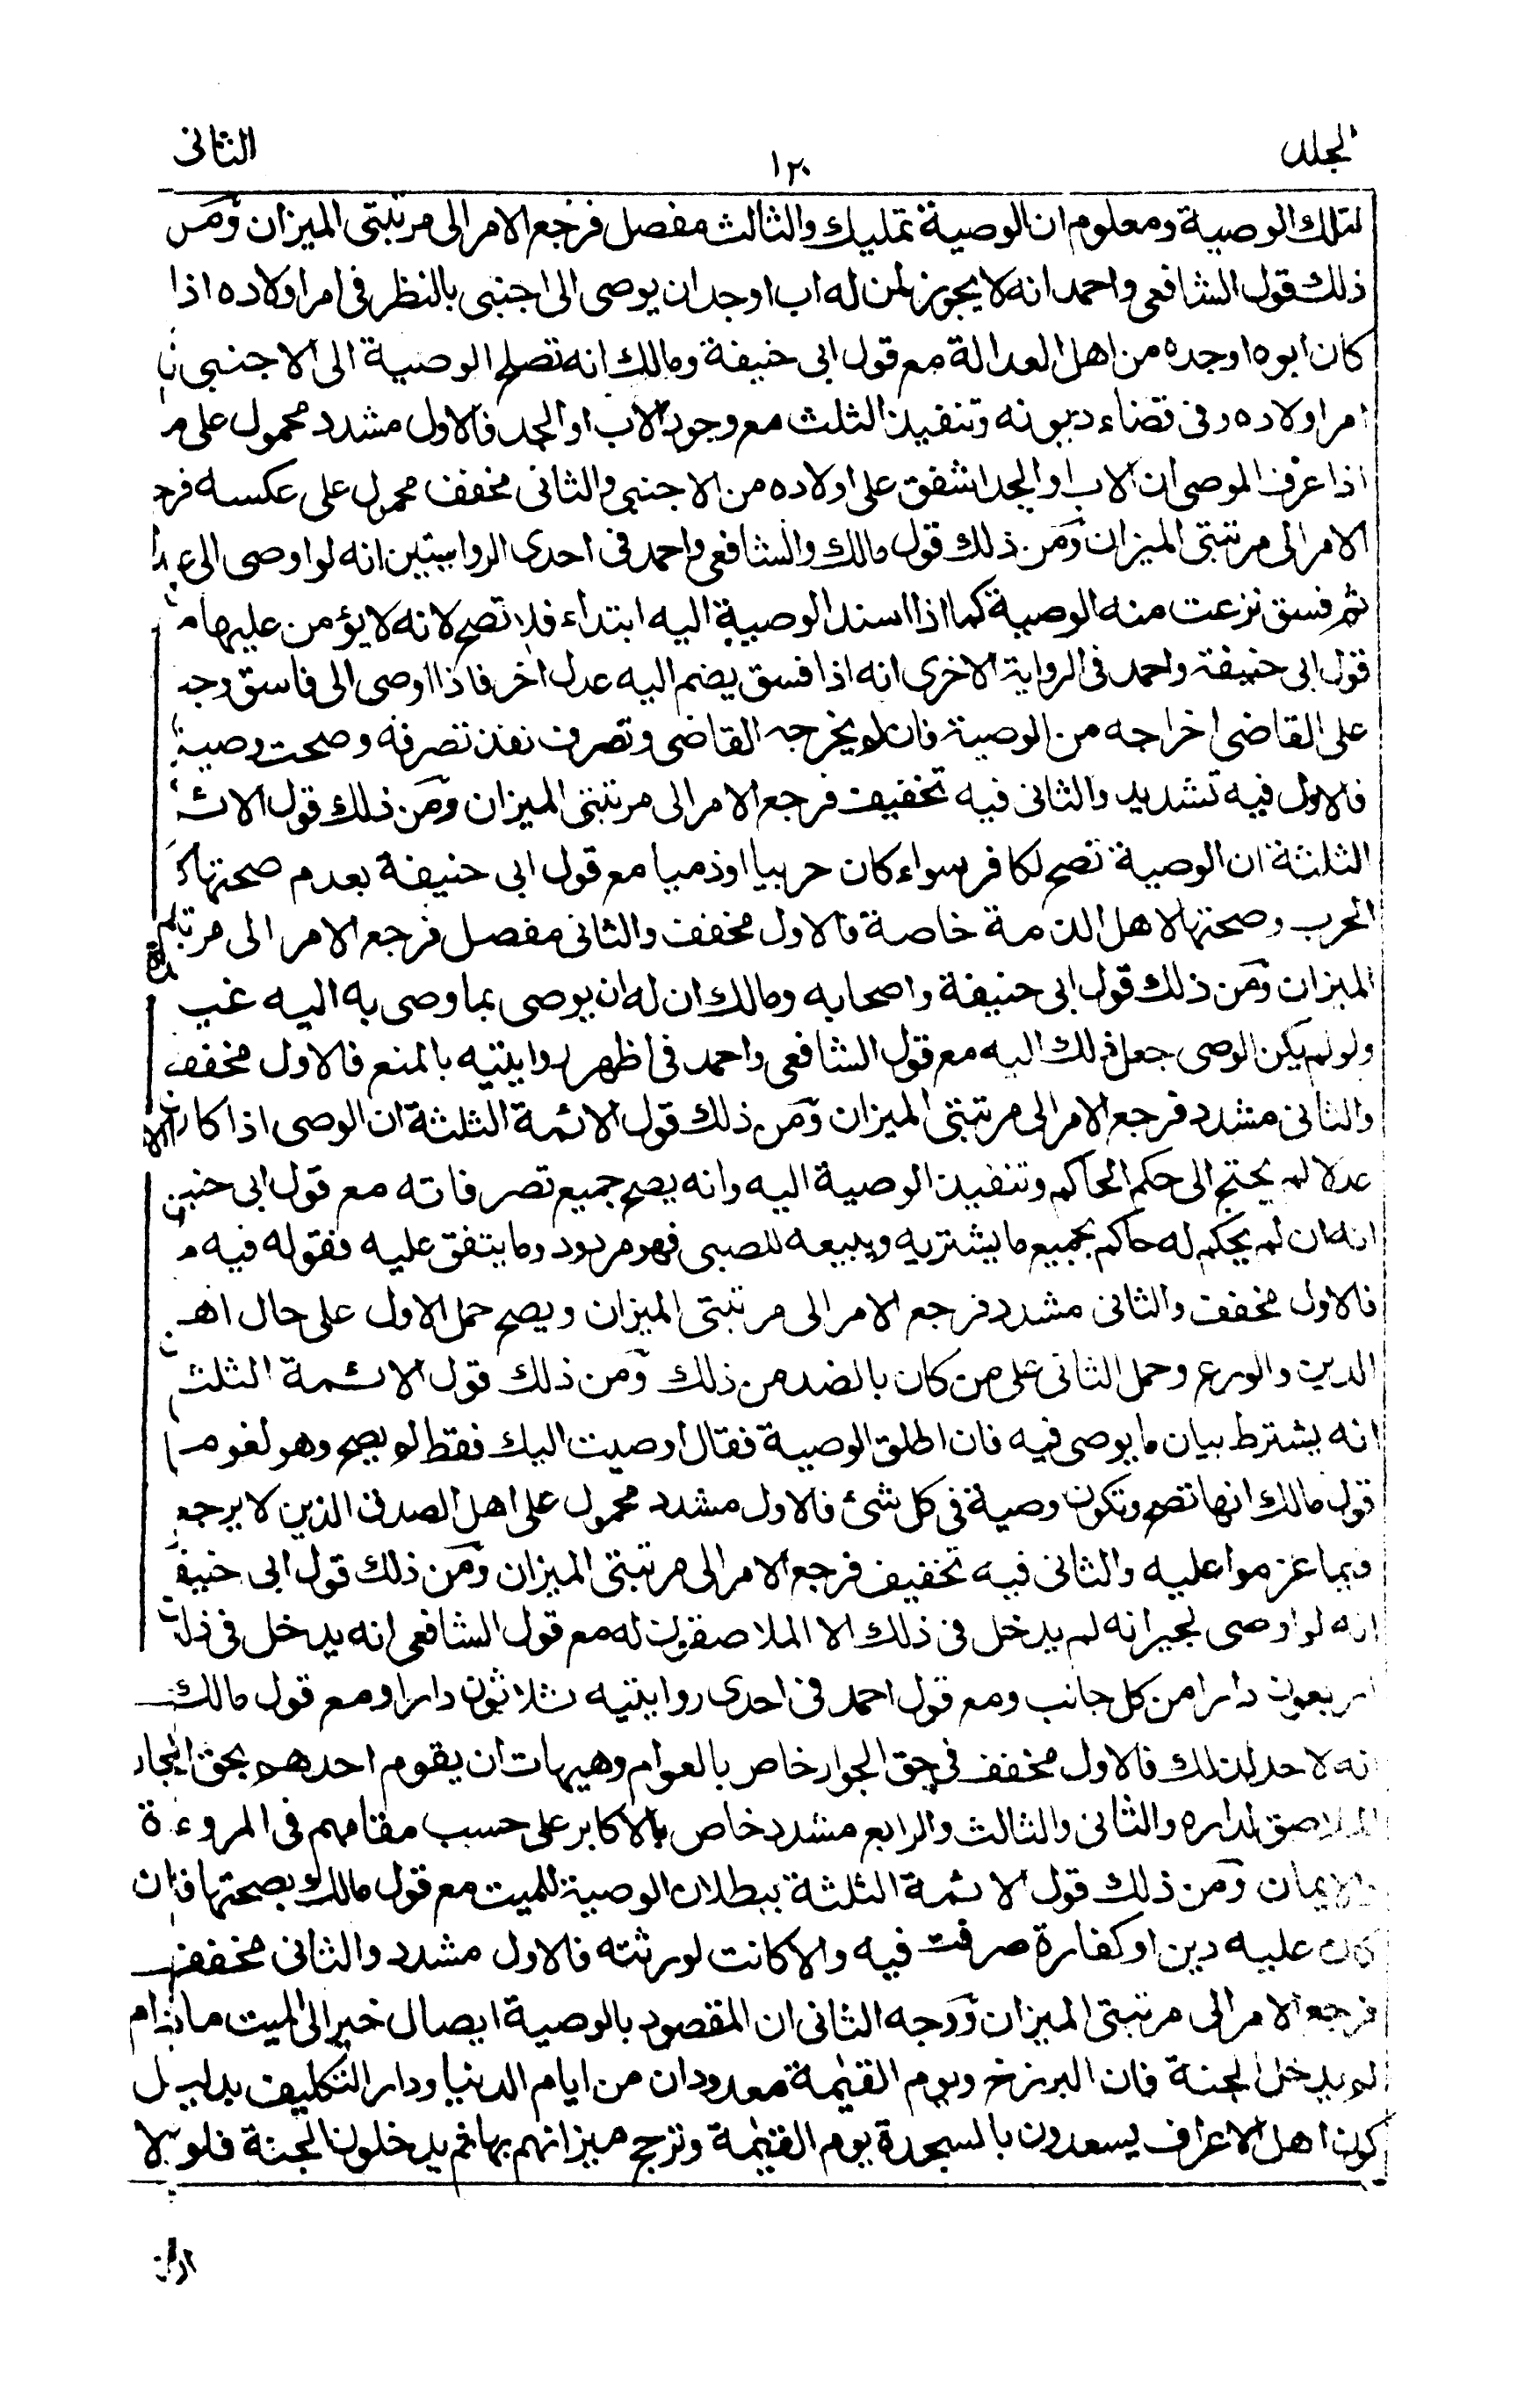 المجلد
١٢٠
الثانى
لتلك الوصية ومعلوم ان الوصية تمليك والثالث مفصل فرجع الامر الى مرتبتى الميزان ومن
ذلك قول الشافعى واحمد انه لا يجوز لمن له اب او جد ان يوصى الى اجنبى بالنظر فى امر اولاده اذا
كان ابوه او جده من اهل العدالة مع قول ابى حنيفة ومالك انه تصلح الوصية الى الاجنبى
امر اولاده وفى قضاء ديونه وتنفيذ الثلث مع وجود الاب او الجد فالاول مشدد محمول على
اذا عرف الموصى ان الاب او الجد اشفق على اولاده من الاجنبى والثانى مخفف محمول على عكسه
الامر الى مرتبتى الميزان ومن ذلك قول مالك والشافعى واحمد فى احدى الروايتين انه لو اوصى الى
ثم فسق نزعت منه الوصية كما اذا اسند الوصية اليه ابتداء فلا تصح لانه لا يؤمن عليها
قول ابى حنيفة واحمد فى الرواية الاخرى انه اذا فسق يضم اليه عدل اخر فاذا اوصى الى فاسق
على القاضى اخراجه من الوصية فان لم يخرجه القاضى وتصرف نفذ تصرفه وصحت وصية
فالاول فيه تشديد والثانى فيه تخفيف فرجع الامر الى مرتبتى الميزان ومن ذلك قول
الثلثة ان الوصية تصح لكافر سواء كان حربيا او ذميا مع قول ابى حنيفة بعدم صحتها
الحرب وصحتها لاهل الذمة خاصة فالاول مخفف والثانى مفصل فرجع الامر الى
الميزان ومن ذلك قول ابى حنيفة واصحابه ومالك ان له ان يوصى بما وصى به اليه
ولو لم يكن الوصى جعل ذلك اليه مع قول الشافعى واحمد فى اظهر روايتيه بالمنع فالاول مخفف
والثانى مشدد فرجع الامر الى مرتبتى الميزان ومن ذلك قول الائمة الثلثة ان الوصى اذا كان
عدلا لم يحتج الى حكم الحاكم وتنفيذ الوصية اليه وانه يصح جميع تصرفاته مع قول ابى
انه ان لم يحكم له حاكم بجميع ما يشتريه ويبيعه للصبى فهو مردود وما يتفق عليه فقوله فيه
فالاول مخفف والثانى مشدد فرجع الامر الى مرتبتى الميزان ويصح حمل الاول على حال
الدين والورع وحمل الثانى على من كان بالضد من ذلك ومن ذلك قول الائمة
انه يشترط بيان ما يوصى فيه فان اطلق الوصية فقال اوصيت اليك فقط لم يصح وهو لغو
قول مالك انها تصح وتكون وصية فى كل شئ فالاول مشدد محمول على اهل الصدق الذين لا
فيما عزموا عليه والثانى فيه تخفيف فرجع الامر الى مرتبتى الميزان ومن ذلك قول ابى
انه لو اوصى لجيرانه لم يدخل فى ذلك الا الملاصقون له مع قول الشافعى انه يدخل فى
اربعون دارا من كل جانب ومع قول احمد فى احدى روايتيه ثلاثون دارا ومع قول مالك
انه لا حد لذلك فالاول مخفف فى حق الجوار خاص بالعوام وهيهات ان يقوم احدهم بحق الجار
الملاصق لداره والثانى والثالث والرابع مشدد خاص بالاكابر على حسب مقامهم فى المروءة
والايمان ومن ذلك قول الائمة الثلثة ببطلان الوصية للميت مع قول مالك بصحتها فان
كان عليه دين او كفارة صرفت فيه والا كانت لورثته فالاول مشدد والثانى مخفف
فرجع الامر الى مرتبتى الميزان ووجه الثانى ان المقصود بالوصية ايصال خير الى الميت مادام
لم يدخل الجنة فان البرزخ ويوم القيٰمة معدودان من ايام الدنيا ودار التكليف بدليل
كون اهل الاعراف يسعدون بالسجدة يوم القيٰمة وترجح ميزانهم بها ثم يدخلون الجنة فلولا